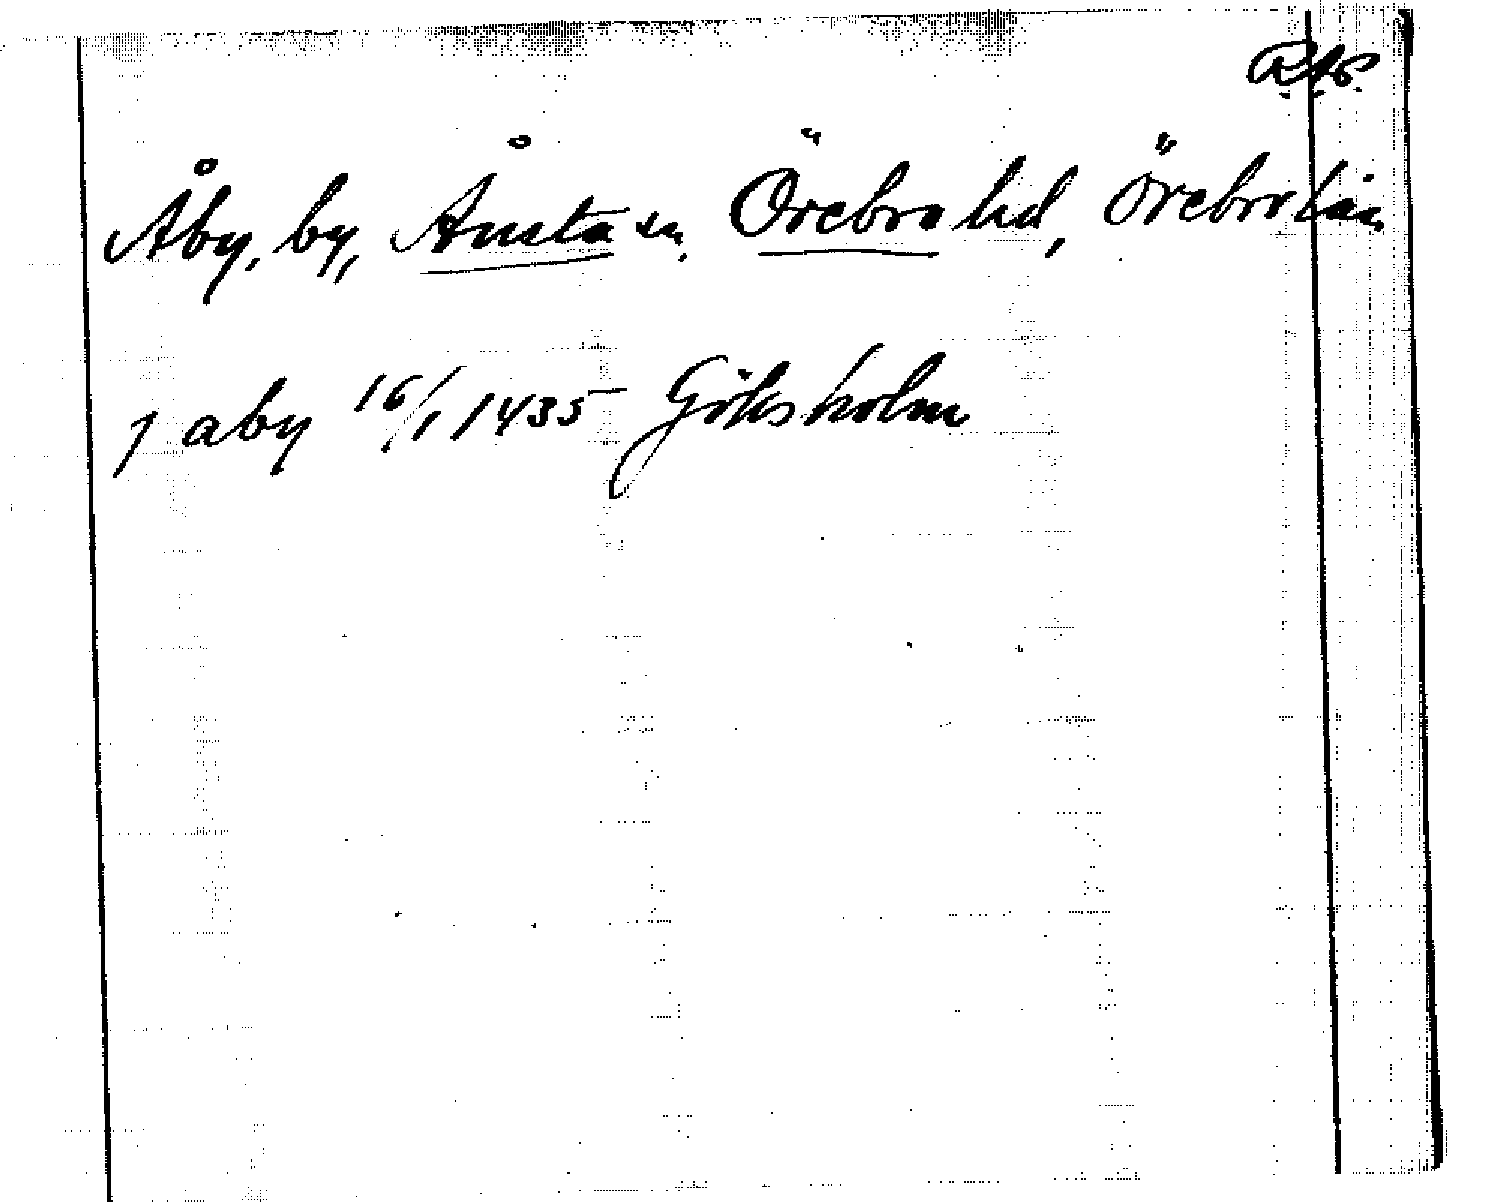 Åby, by, Ånsta sn. Örebro hd, Örebro län
j aby 16/1 1435 Göksholm